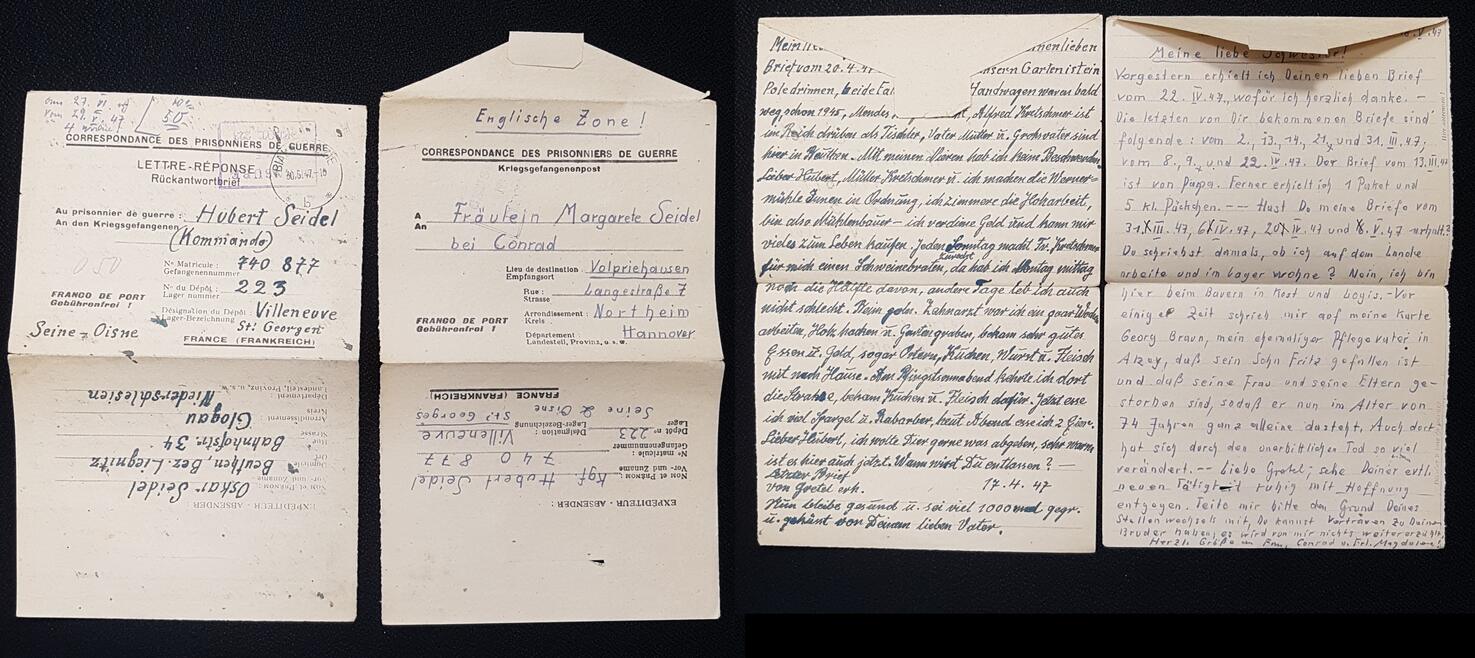 vom 27. VI. 47
vom 29. V. 47
4
50
CORRESPONDANCE DES PRISONNIERS DE GUERRE
LETTRE-RÉPONSE
Rückantwortbrief
30.5.47.-18
Au prisonnier de guerre :
An den Kriegsgefangenen
Hubert Seidel
(Kommando)
050
No Matricule :
Gefangenennummer
740 877
No du Dépôt :
Lager nummer
223
FRANCO DE PORT
Gebührenfrei !
Désignation du Dépôt :
Lager-Bezeichnung
Villeneuve
St: Georgen
Seine-Oisne
FRANCE (FRANKREICH)
Landesteil, Provinz, u.s.w.
Département :
Niederschlesien
Kreis
Arrondissement :
Glogau
Strasse
Rue :
Bahnhofstr. 34
Ort
Domicile :
Beuthen, Bez. Liegnitz
Vor- und Zuname
Nom et Prénom :
Oskar Seidel
EXPÉDITEUR - ABSENDER :
Englische Zone !
CORRESPONDANCE DES PRISONNIERS DE GUERRE
Kriegsgefangenenpost
A
An
Fräulein Margarete Seidel
bei Conrad
Lieu de destination :
Empfangsort
Volpriehausen
Rue :
Strasse
Langestraße 7
FRANCO DE PORT
Gebührenfrei !
Arrondissement :
Kreis
Northeim
Département :
Landesteil, Provinz, u.s.w.
Hannover
FRANCE (FRANKREICH)
Seine & Oisne
Lager
Dépôt no
223
Désignation :
Lager-Bezeichnung
Villeneuve St: Georges
Gefangenennummer
No matricule :
740 877
Vor- und Zuname
Nom et Prénom :
Kgf. Hubert Seidel
EXPÉDITEUR - ABSENDER :
Mein nenlieben
Brief vom 20.4.47 nsern Garten ist ein
Pole drinnen, beide Handwagen waren bald
weg schon 1945, Alfred Kretschmer ist
im Reich drüben als Tischler, Vater Mutter u. Großvater sind
hier in Beuthen. Mit meinen Nieren hab ich keine Beschwerden.
Lieber Hubert, Müller Kretschmer u. ich machen die Werner=
mühle Innen in Ordnung, ich zimmere die Holzarbeit,
bin also Mühlenbauer – ich verdiene Geld und kann mir
vieles zum Leben kaufen. Jeden Sonntag macht Fr. Kretschmer
zurecht
für mich einen Schweinebraten, da hab ich Montag mittag
noch die Hälfte davon, andere Tage leb ich auch
nicht schlecht. Beim poln. Zahnarzt war ich ein paar Wochen
arbeiten, Holz hacken u. Gartengraben, bekam sehr gutes
Essen u. Geld, sogar Ostern, Kuchen, Wurst u. Fleisch
mit nach Hause. Am Pfingstsonnabend kehrte ich dort
die Straße, bekam Kuchen u. Fleisch dafür. Jetzt esse
ich viel Spargel u. Rabarber, heut Abend esse ich 2 Eier.
Lieber Heibert, ich wollte Dir gerne was abgeben, sehr warm
ist es hier auch jetzt. Wann wirst Du entlassen? —
Letzter Brief
von Gretel erh. 17.4.47
Nun bleibe gesund u. sei viel 1000mal gegr.
u. geküsst von Deinem lieben Vater.
V.47
Meine liebe Schwester!
Vorgestern erhielt ich Deinen lieben Brief
vom 22. IV. 47., wofür ich herzlich danke. –
Die letzten von Dir bekommenen Briefe sind
folgende: vom 2., 13., 14., 21., und 31. III. 47,
vom 8., 9., und 22. IV. 47. Der Brief vom 13. III. 47
ist von Papa. Ferner erhielt ich 1 Paket und
5 kl. Päckchen. –– Hast Du meine Briefe vom
31. III. 47, 6. IV. 47, 20. IV. 47 und 8. V. 47 erhalt.?
Du schriebst damals, ob ich auf dem Lande
arbeite und im Lager wohne? Nein, ich bin
hier beim Bauern in Kost und Logis. – Vor
einiger Zeit schrieb mir auf meine Karte
Georg Braun, mein ehemaliger Pflegevater in
Alzey, daß sein Sohn Fritz gefallen ist
und daß seine Frau und seine Eltern ge-
storben sind, sodaß er nun im Alter von
74 Jahren ganz alleine dasteht. Auch dort
hat sich durch den unerbittlichen Tod so viel
verändert. –– Liebe Gretel; sehe Deiner evtl.
neuen Tätigkeit ruhig mit Hoffnung
entgegen. Teile mir bitte den Grund Deines
Stellenwechsels mit, Du kannst Vertrauen zu Deinem
Bruder haben, es wird von mir nichts weitererzählt.
Herzl. Grüße an Fam. Conrad u. Frl. Magdalene